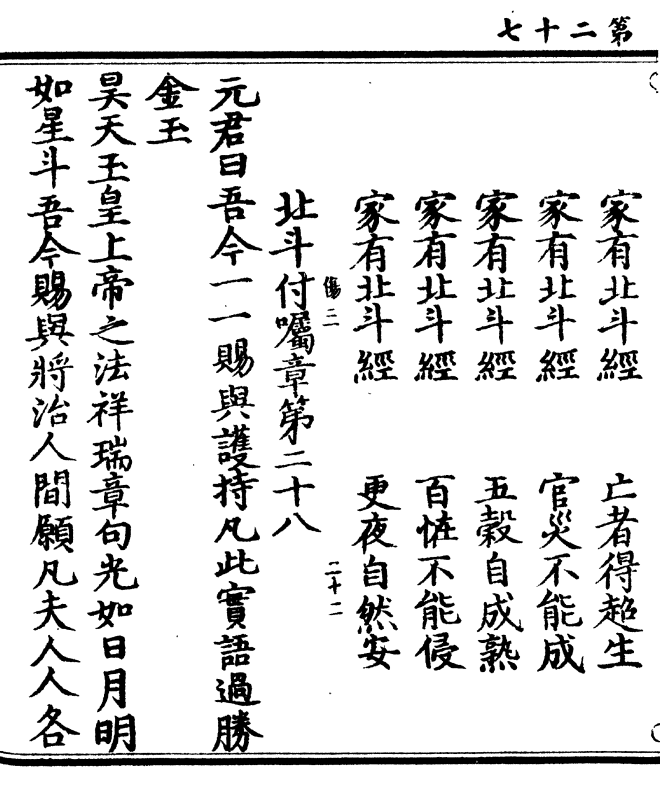 第二十七
家有北斗經　亡者得超生
家有北斗經　官災不能成
家有北斗經　五穀自成熟
家有北斗經　百恠不能侵
家有北斗經　更夜自然安
傷二　二十二
北斗付囑章第二十八
元君曰吾今一一賜與護持凡此寶語過勝
金玉
昊天玉皇上帝之法祥瑞章句光如日月明
如星斗吾今賜與將治人間願凡夫人人各